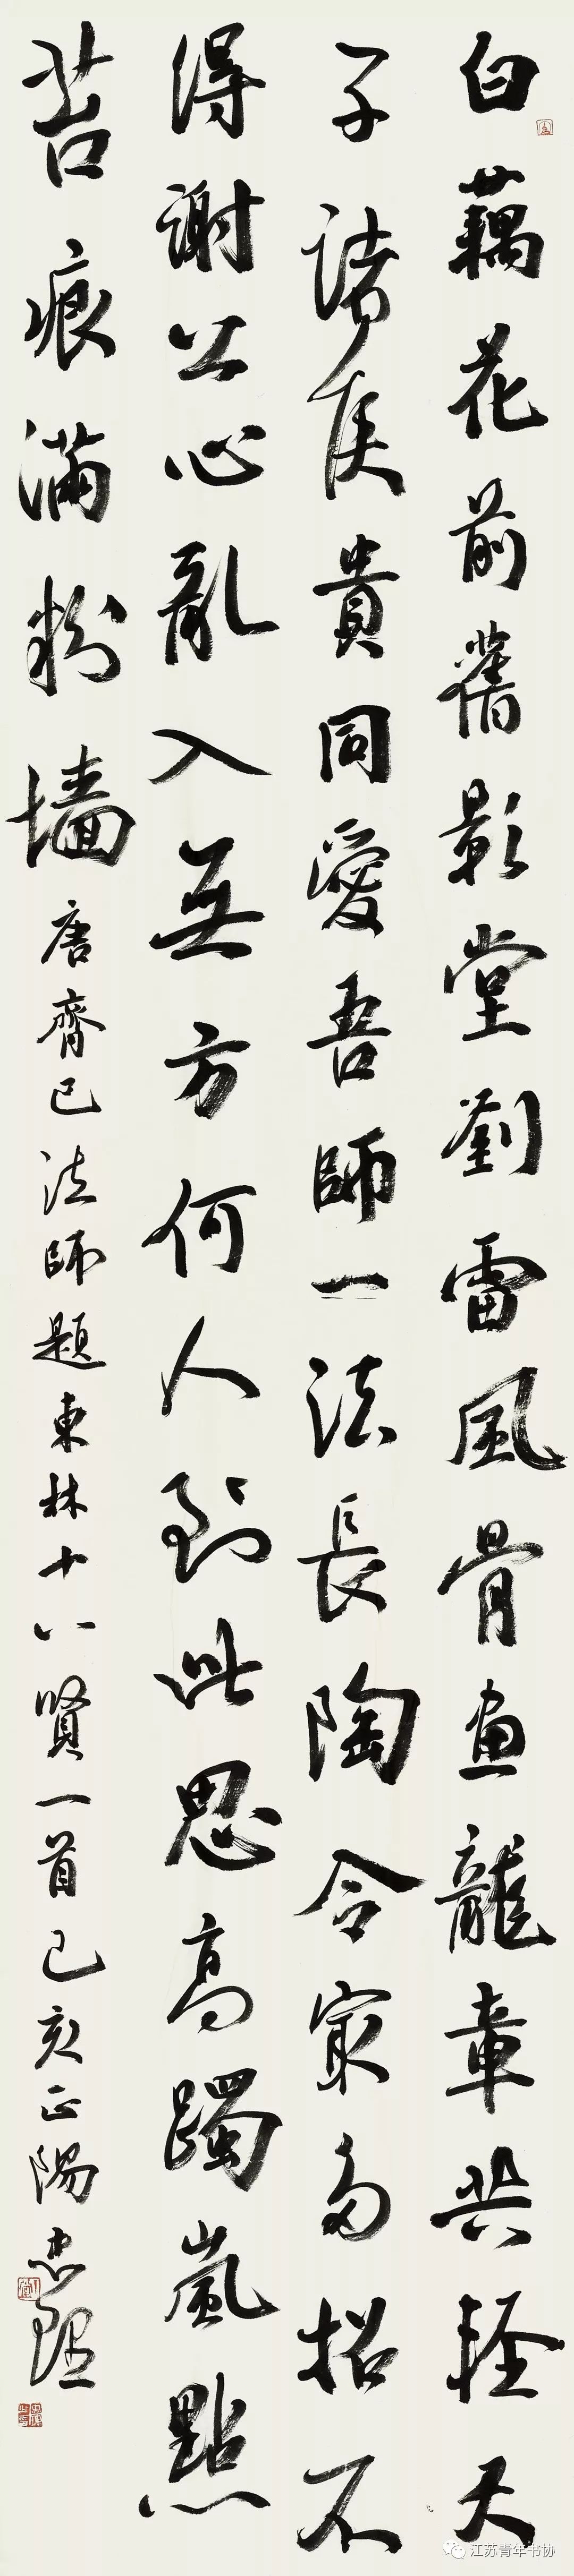 白藕花前舊影堂劉雷風骨畫龍章共輕天
子諸侯貴同愛吾師一法長陶令㝡多招不
得謝公心亂入無方何人到此思高躅嵐點
苔痕滿粉墻
唐齊己法師題東林十八賢一首己亥正陽忠
江苏青年书协